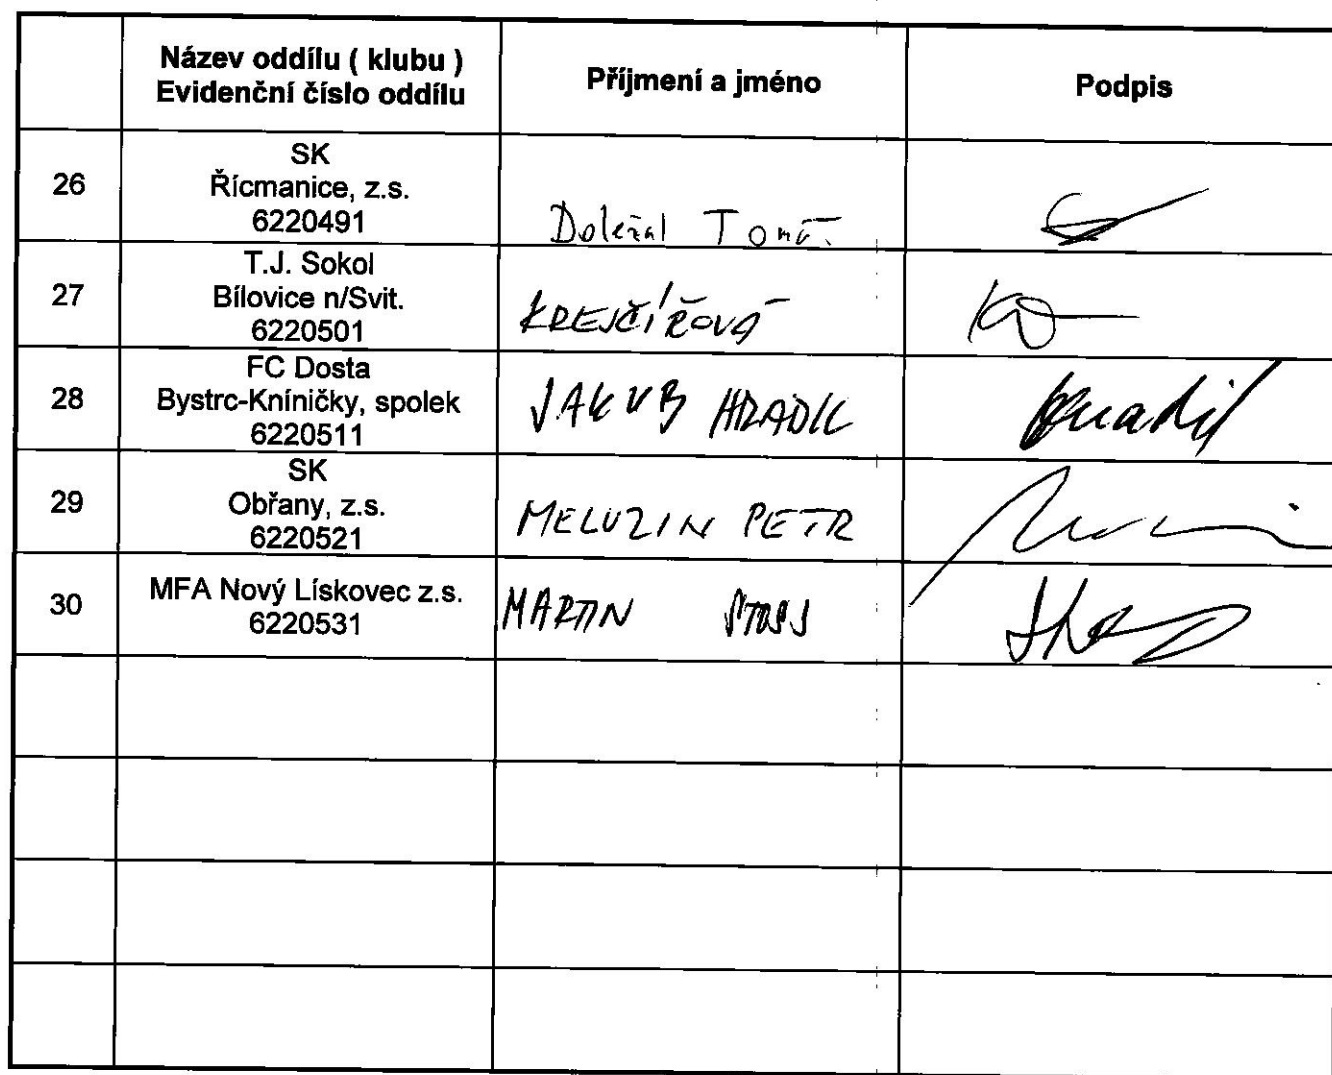 Název oddílu ( klubu )
Evidenční číslo oddílu
Příjmení a jméno
Podpis
26
SK
Řícmanice, z.s.
6220491
Doležal
27
T.J. Sokol
Bílovice n/Svit.
6220501
KREJČÍŘOVÁ
28
FC Dosta
Bystrc-Kníničky, spolek
6220511
JAKUB HRADIL
Hradil
29
SK
Obřany, z.s.
6220521
MELUZIN PETR
30
MFA Nový Lískovec z.s.
6220531
MARTIN